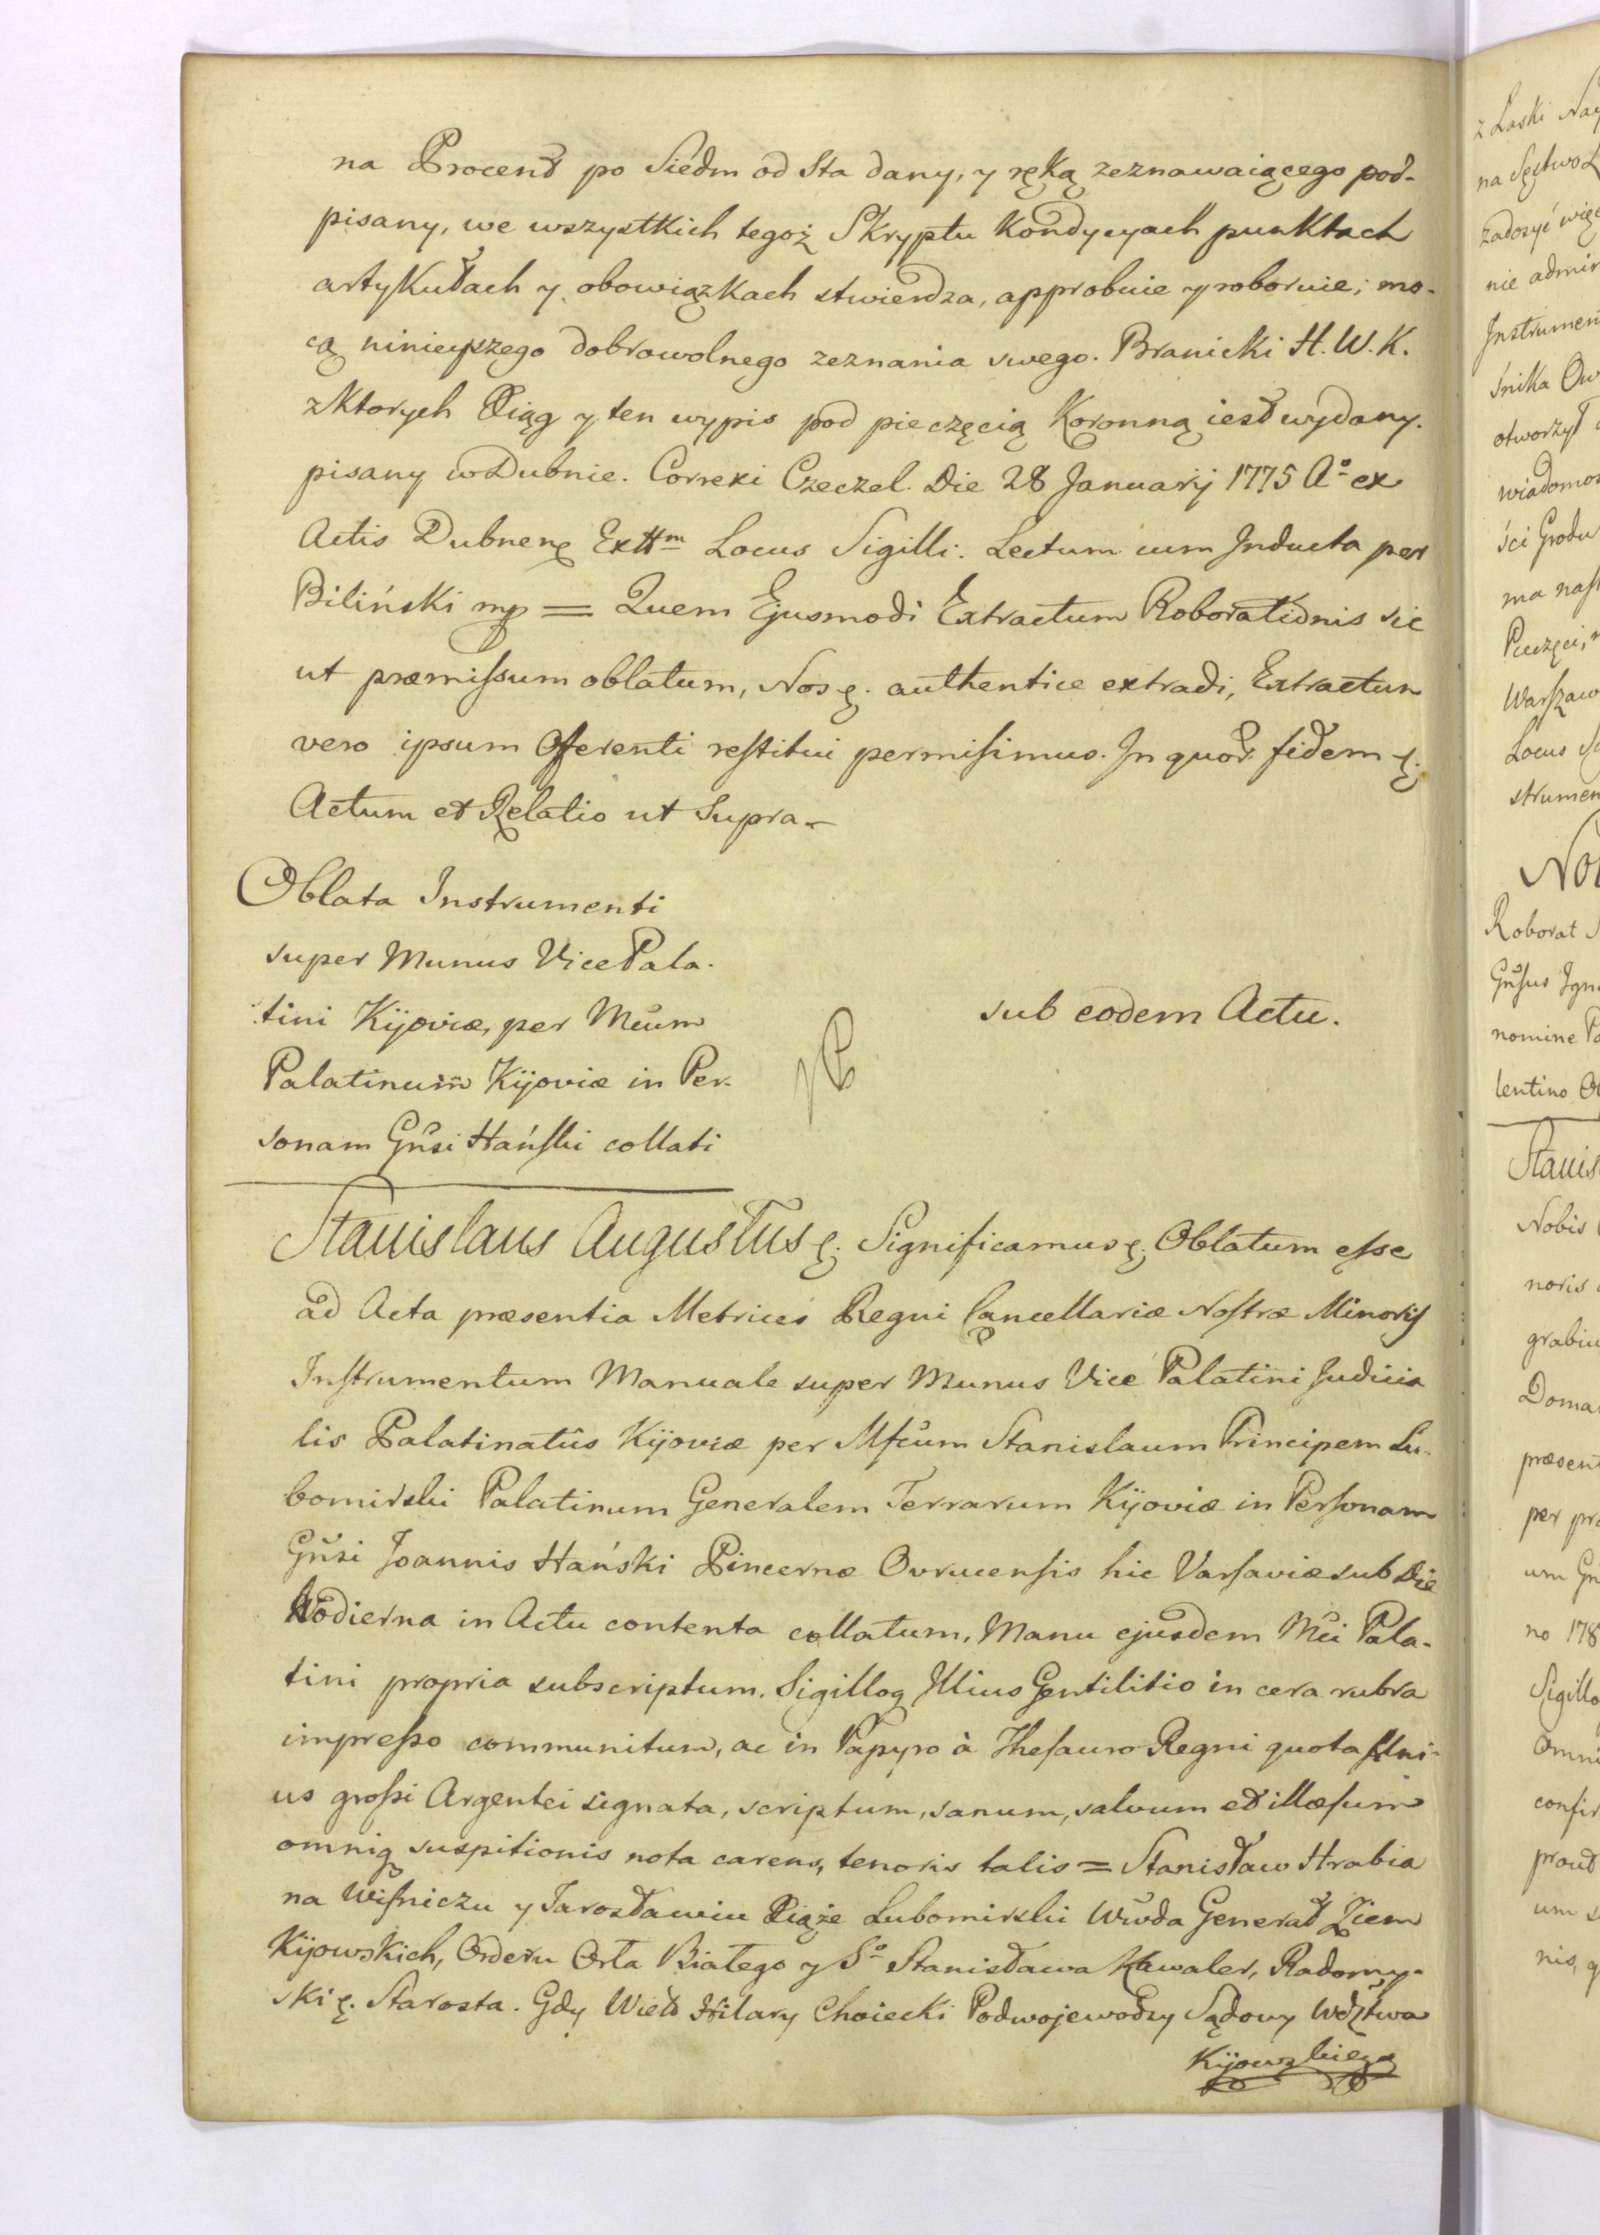 na Procent po Siedm od Sta dany, y ręką zeznawaiącego pod-
pisany, we wszystkich tegoż Skryptu Kondycyach punktach
artykułach y obowiązkach stwierdza, approbuie y roboruie; mo-
cą ninieyszego dobrowolnego zeznania swego. Branicki H. W. K.
z Ktorych Xiąg y ten wypis pod pieczęcią Koronną iest wydany.
pisany w Dubnie. Correxi Czeczel. Die 28 Januarij 1775 Aº ex
Actis Dubnen Exttm Locus Sigilli. Lectum cum Inducta per
Biliński mp = Quem Ejusmodi Extractum Roborationis sic
ut præmissum oblatum, Nos authentice extradi, Extractum
vero ipsum Offerenti restitui permisimus. In quor fidem
Actum et Relatio ut Supra
Oblata Instrumenti
super Munus Vice Pala-
tini Kijoviæ, per Mcum
Palatinum Kijoviæ in Per-
sonam Gnsi Hański collati
sub eodem Actu.
Stanislaus Augustus Significamus Oblatum esse
ad Acta præsentia Metrices Regni Cancellariæ Nostræ Minoris
Instrumentum Manuale super Munus Vice Palatini Judicia
lis Palatinatûs Kijoviæ per Mfcum Stanislaum Principem Lu-
bomirski Palatinum Generalem Terrarum Kijoviæ in Personam
Gnsi Joannis Hański Pincernæ Ovrucensis hic Varsaviæ sub Die
Hodierna in Actu contenta collatum, Manu ejusdem Mci Pala-
tini propria subscriptum. Sigilloq Illius Gentilitio in cera rubra
impresso communitum, ac in Papyro à Thesauro Regni quota Uni-
us grossi Argentei signata, scriptum, sanum, salvum et illæsum
omniq suspitionis nota carens, tenoris talis = Stanisław Hrabia
na Wiśniczu y Jarosławiu Xiąże Lubomirski Wwda Generał Ziem
Kijowskich, Orderu Orła Białego y Sº Stanisława Kawaler, Radomy-
ski Starosta. Gdy Wielb Hilary Choiecki Podwojewodzy Sądowy Wdztwa
Kijowskiego
z Łaski Nay
zadosyć więc
nie admin
Instrumen
śnika Ow
otworzył
wiadomos
ści Grodu
ma nast
Pieczęci,
Warszaw
Locus
strumen
Roborat
Gnsus Ign
nomine
lentino
Stanis
Nobis
noris
grabiu
Doma
præsent
per
um Gn
no 178
Sigillo
Omni
confir
prout
um
nis,